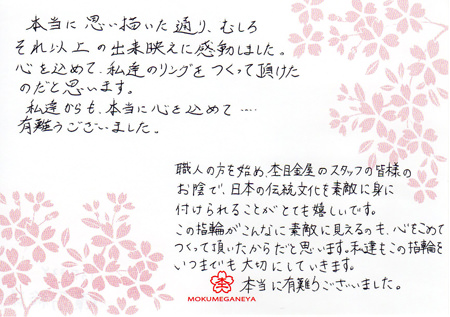 本当に思い描いた通り、むしろ
それ以上の出来映えに感動しました。
心を込めて、私達のリングをつくって頂けた
のだと思います。
私達からも、本当に心を込めて……
有難うございました。
職人の方を始め、杢目金屋のスタッフの皆様の
お陰で、日本の伝統文化を素敵に身に
付けられることがとても嬉しいです。
この指輪がこんなに素敵に見えるのも、心をこめて
つくって頂いたからだと思います。私達もこの指輪を
いつまでも大切にしていきます。
本当に有難うございました。
MOKUMEGANEYA